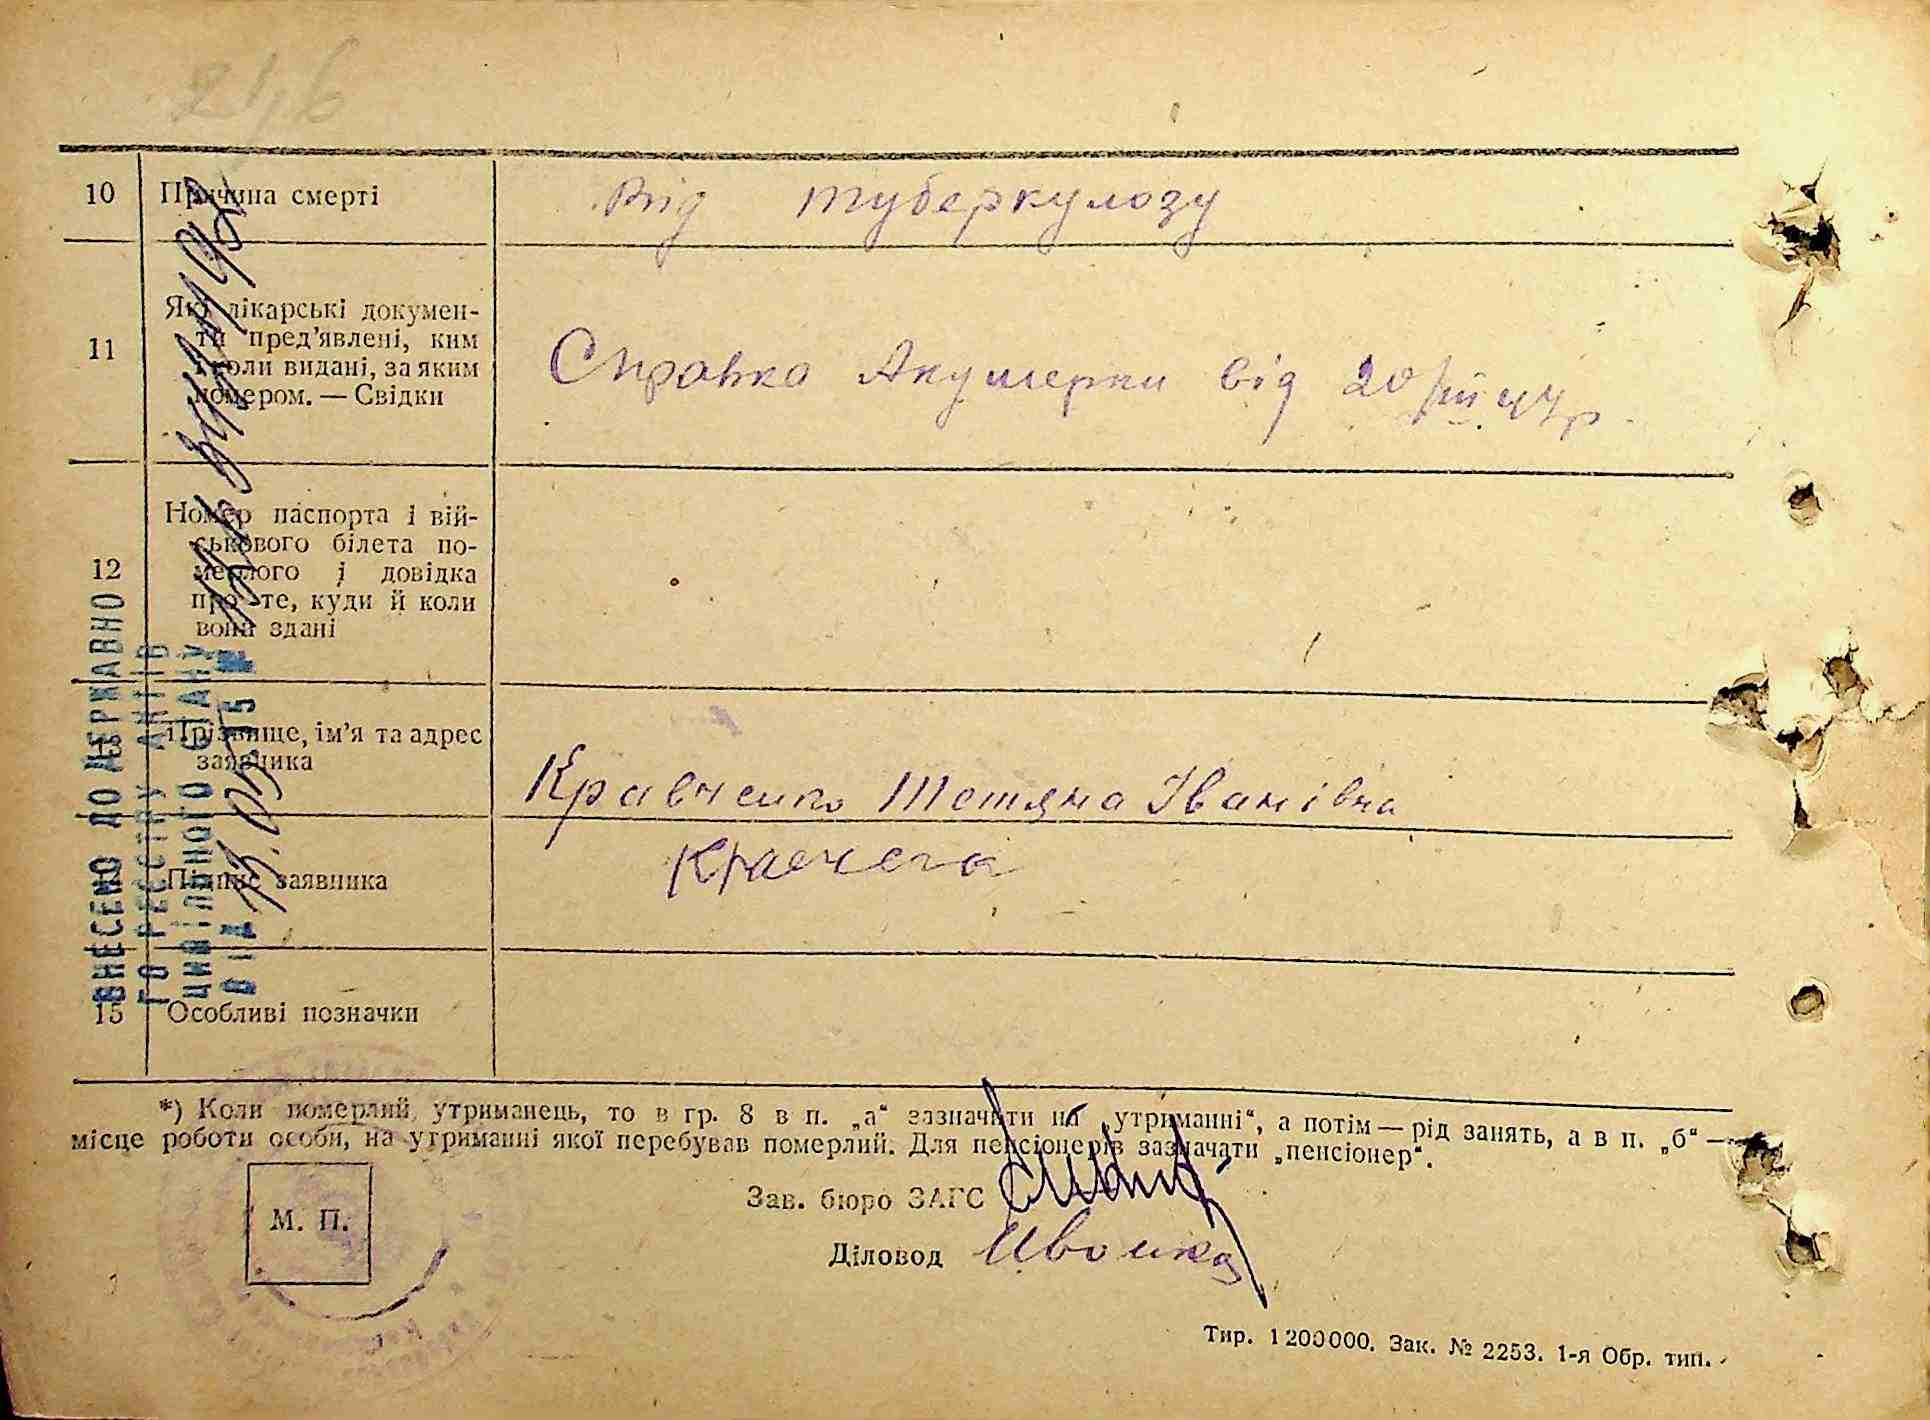 10 Причина смерті Від туберкулозу
11 Які лікарські докумен-
ти пред'явлені, ким
і коли видані, за яким
номером. — Свідки
Справка Акушерки від 20/VIII 47р.
12 Номер паспорта і вій-
ськового білета по-
мерлого і довідка
про те, куди й коли
вони здані
13 Прізвище, ім'я та адрес
заявника
Кравченко Тотяна Іванівна
14 Підпис заявника
15 Особливі позначки
ВНЕСЕНО ДО ДЕРЖАВНО
ГО РЕЄСТРУ АКТІВ
ЦИВІЛЬНОГО СТАНУ
ВІД
*) Коли померлий утриманець, то в гр. 8 в п. „а“ зазначити на „утриманні“, а потім — рід занять, а в п. „б“ —
місце роботи особи, на утриманні якої перебував померлий. Для пенсіонерів зазначати „пенсіонер“.
М. П.
Зав. бюро ЗАГС
Діловод
Тир. 1200000. Зак. № 2253. 1-я Обр. тип.